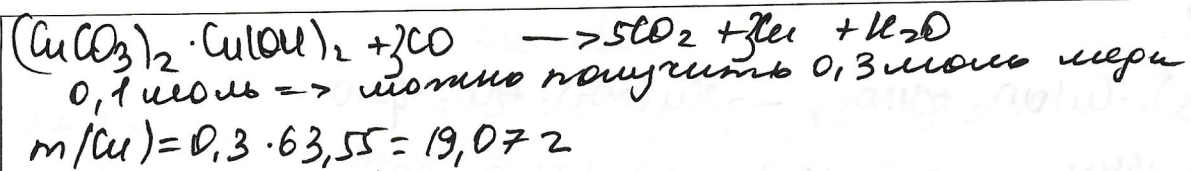 (CuCO3)2 · Cu(OH)2 + 3CO —> 5CO2 + 3Cu + H2O
0,1 моль => можно получить 0,3 моль меди
m(Cu) = 0,3 · 63,55 = 19,07 г